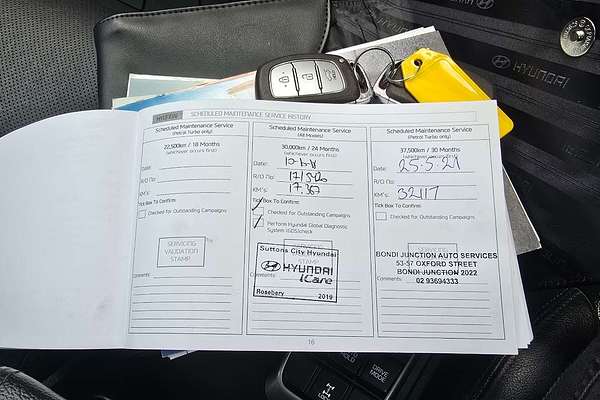 HYUNDAI
HYUNDAI
SCHEDULED MAINTENANCE SERVICE HISTORY
Scheduled Maintenance Service
(Petrol Turbo only)
22,500km / 18 Months
(whichever occurs first)
Date:
R/O No:
KM's:
Tick Box To Confirm:
Checked for Outstanding Campaigns
SERVICING
VALIDATION
STAMP
Comments:
Scheduled Maintenance Service
(All Models)
30,000km / 24 Months
(whichever occurs first)
Date:
R/O No:
KM's: 17,367
Tick Box To Confirm:
Checked for Outstanding Campaigns
Perform Hyundai Global Diagnostic
System (GDS)check
STAMP
Suttons City Hyundai
HYUNDAI
iCare
Rosebery 2019
Comments:
Scheduled Maintenance Service
(Petrol Turbo only)
37,500km / 30 Months
(whichever occurs first)
Date: 25-5-21
R/O No:
KM's: 32117
Tick Box To Confirm:
Checked for Outstanding Campaigns
BONDI JUNCTION AUTO SERVICES
53-57 OXFORD STREET
BONDI JUNCTION 2022
02 93694333
Comments:
16
HOLD
DRIVE
MODE